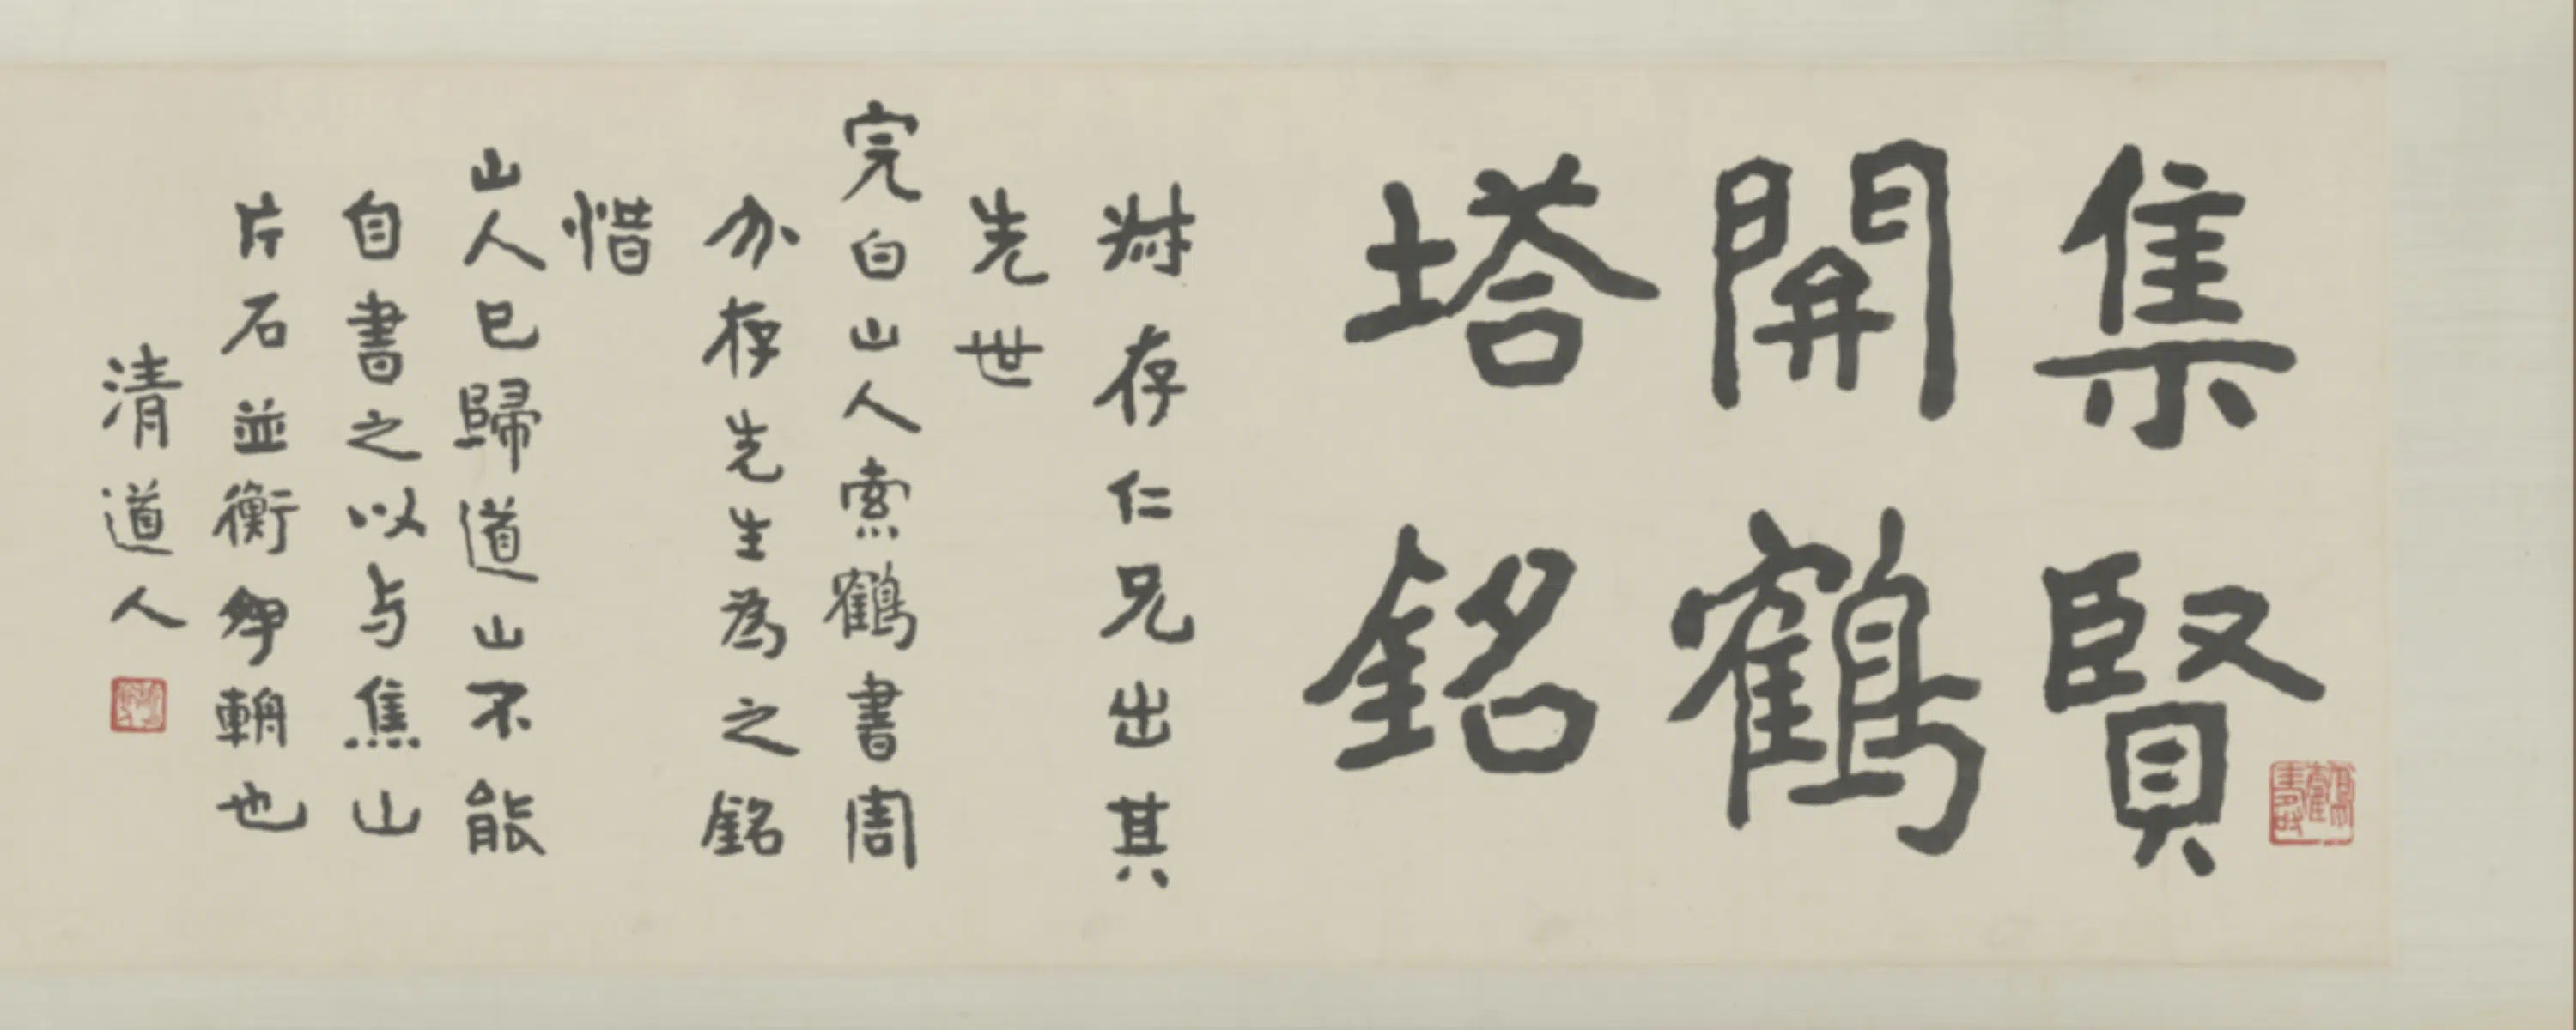 集賢
閞鶴
塔銘
叔存仁兄出其
先世
完白山人索鶴書周
介存先生為之銘
惜
山人已歸道山不能
自書之以与焦山
片石並衡輈也
清道人